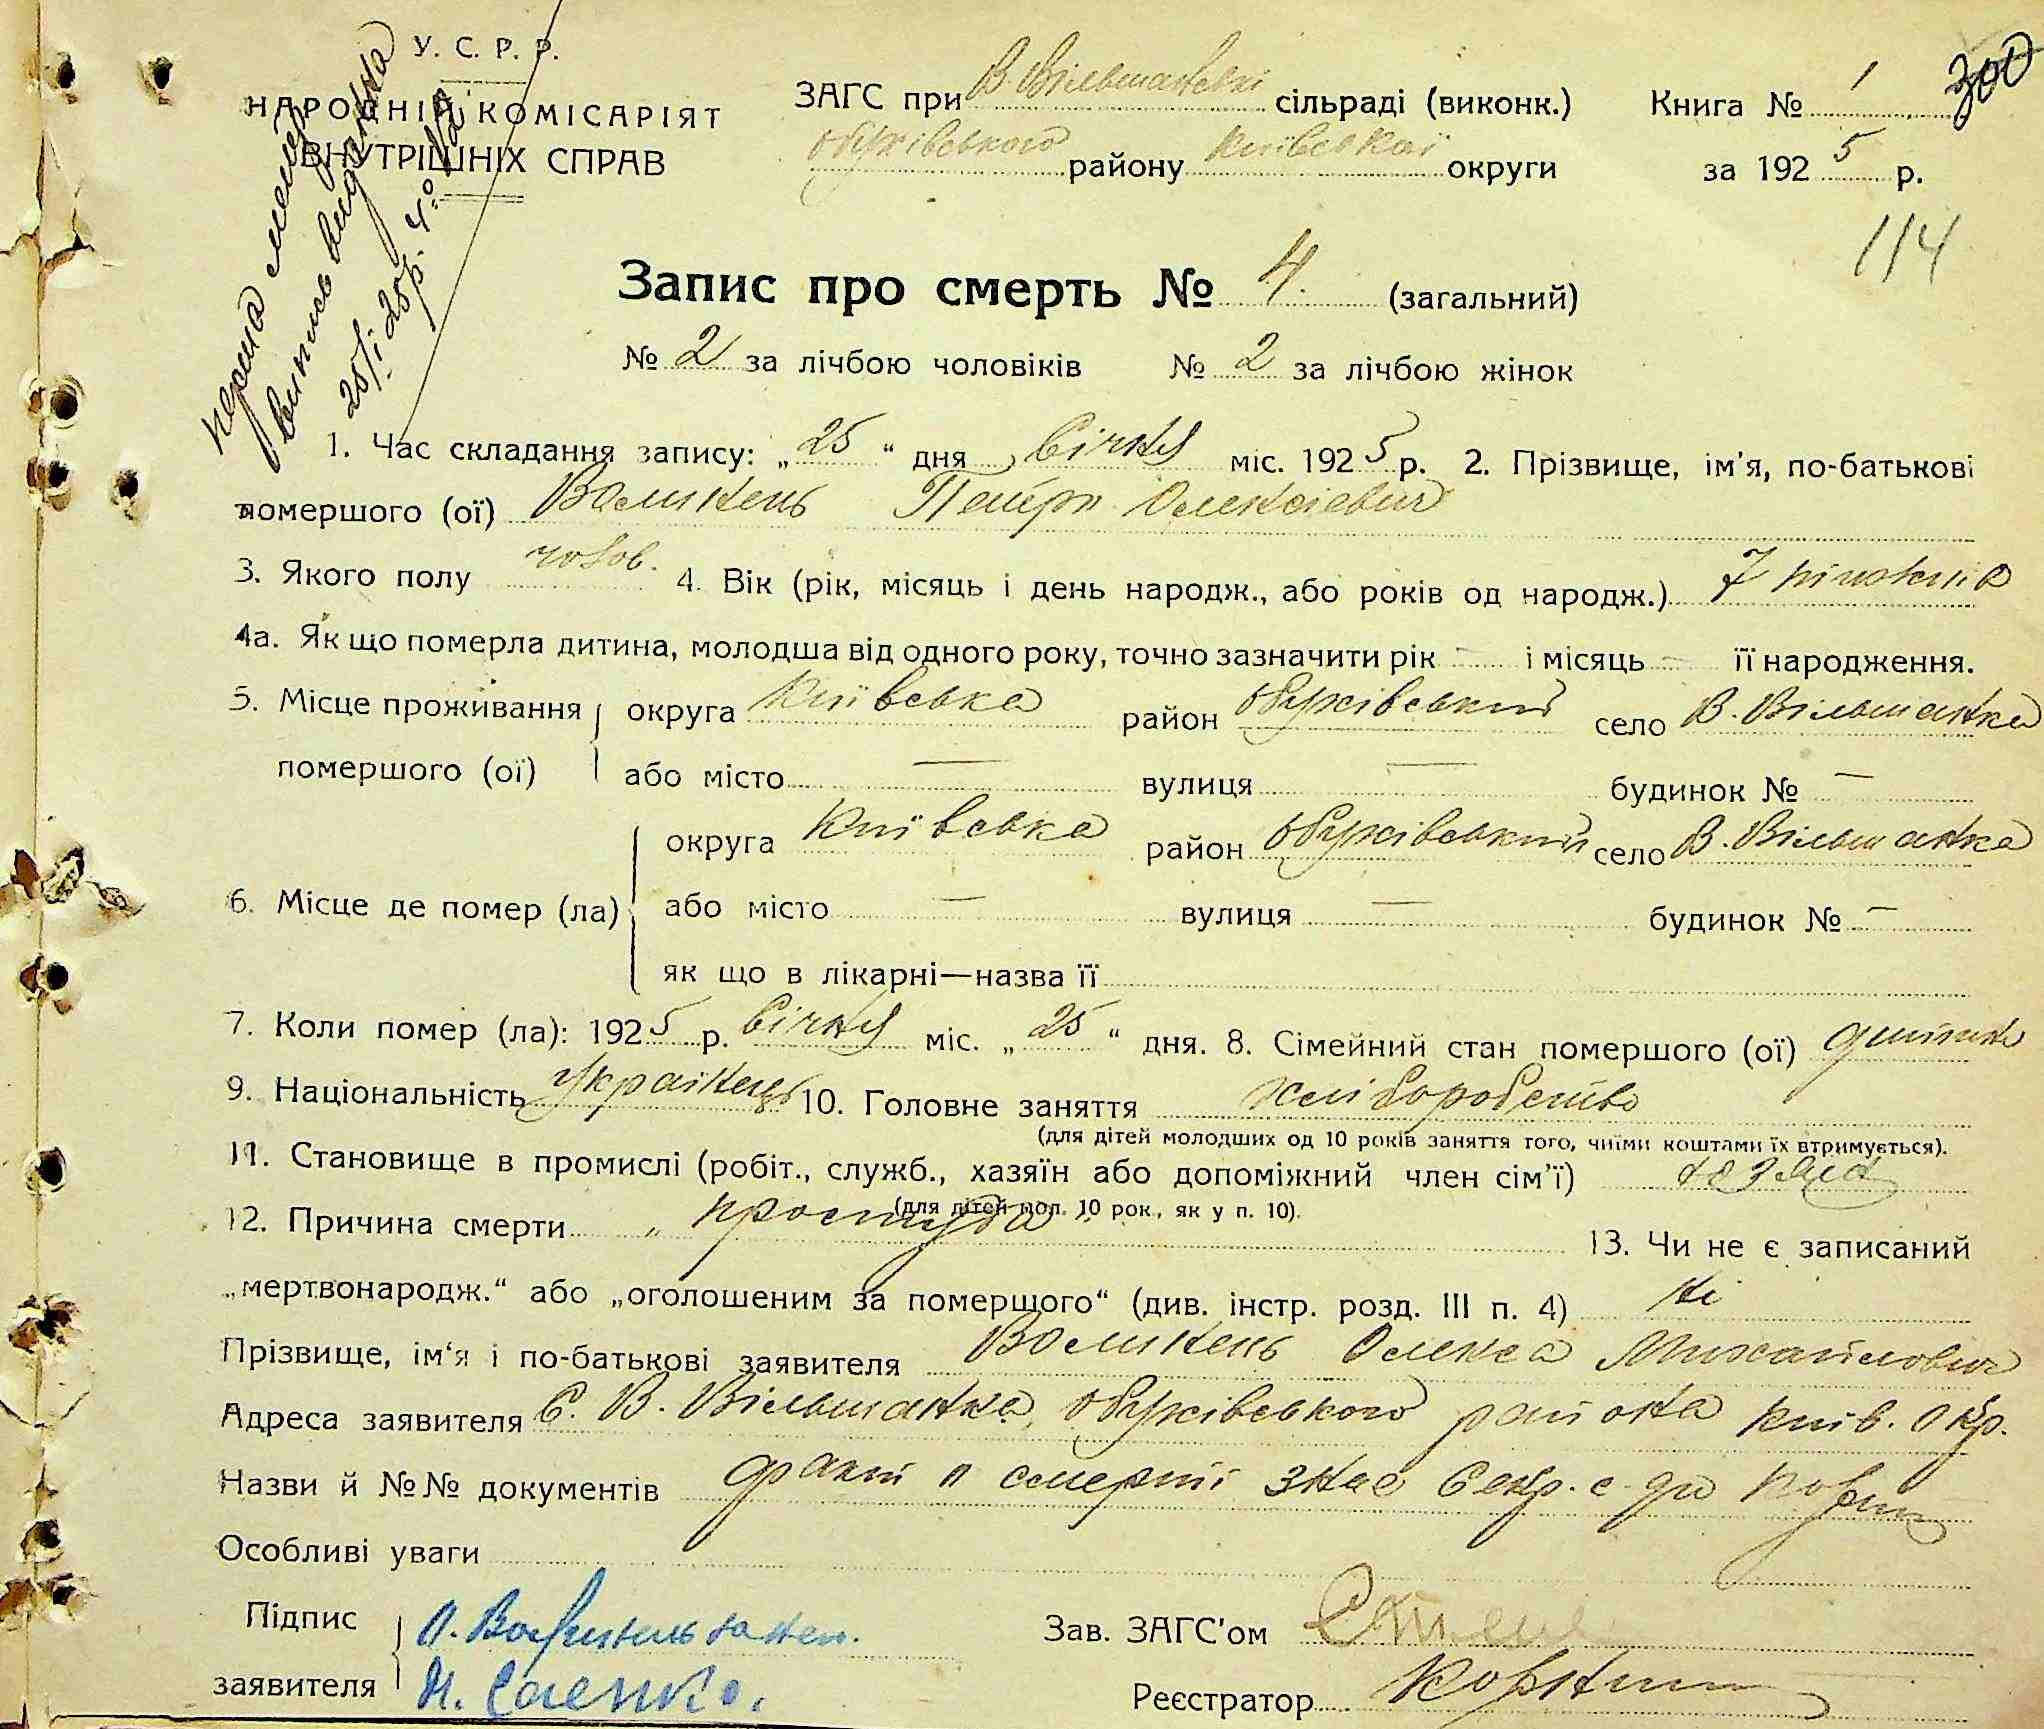 У. С. Р. Р.
НАРОДНІЙ КОМІСАРІЯТ
ВНУТРІШНІХ СПРАВ
ЗАГС при В. Вільшанській сільраді (виконк.)
обухівського району київської округи
Книга № 1
300
за 1925 р.
114
перша
випись видана
Запис про смерть № 4. (загальний)
№ 2 за лічбою чоловіків № 2 за лічбою жінок
1. Час складання запису: „25“ дня Січня міс. 1925 р. 2. Прізвище, ім'я, по-батькові
помершого (ої) Петро Олексієвич
3. Якого полу чолов. 4. Вік (рік, місяць і день народж., або років од народж.) 7
4а. Як що померла дитина, молодша від одного року, точно зазначити рік — і місяць — її народження.
5. Місце проживання округа Київська район обухівський село В. Вільшанка
помершого (ої) або місто — вулиця — будинок № —
округа Київська район обухівський село В. Вільшанка
6. Місце де помер (ла) або місто — вулиця — будинок № —
як що в лікарні—назва її
7. Коли помер (ла): 1925 р. Січня міс. „25“ дня. 8. Сімейний стан помершого (ої)
9. Національність Українець 10. Головне заняття хліборобство
(для дітей молодших од 10 років заняття того, чиїми коштами їх втримується).
11. Становище в промислі (робіт., служб., хазяїн або допоміжний член сім'ї)
(для дітей мол. 10 рок., як у п. 10).
12. Причина смерти „ простуда 13. Чи не є записаний
„мертвонародж.“ або „оголошеним за помершого“ (див. інстр. розд. III п. 4) ні
Прізвище, ім'я і по-батькові заявителя Олекса Михайлович
Адреса заявителя С. В. Вільшанка, обухівського района Київ. окр.
Назви й №№ документів факт о смерті знає Секр. с-ди
Особливі уваги
Підпис
заявителя
Н. Саенко.
Зав. ЗАГС'ом
Реєстратор